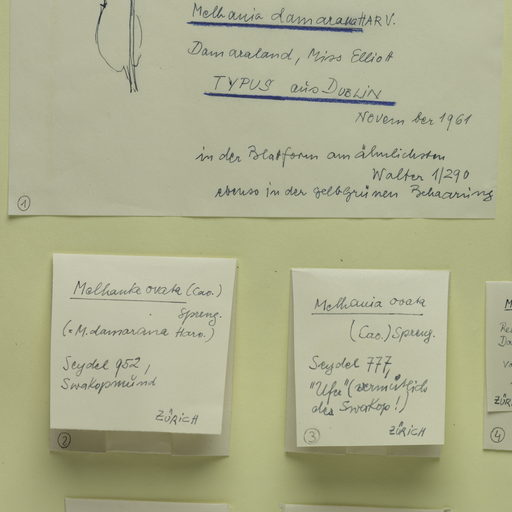 Melhania damarana HARV.
Damaraland, Miss Elliott
TYPUS aus DUBLIN
November 1961
in der Blattform am ähnlichsten
Walter 1/290
ebenso in der gelbgrünen Behaarung
1
Melhania ovata (Cav.)
Spreng.
(= M. damarana Harv.)
Seydel 952,
Swakopmund
ZÜRICH
2
Melhania ovata
(Cav.) Spreng.
Seydel 777,
"Ufer" (vermutlich
des Swakop!)
ZÜRICH
3
M
Re
Da
ZÜR
4